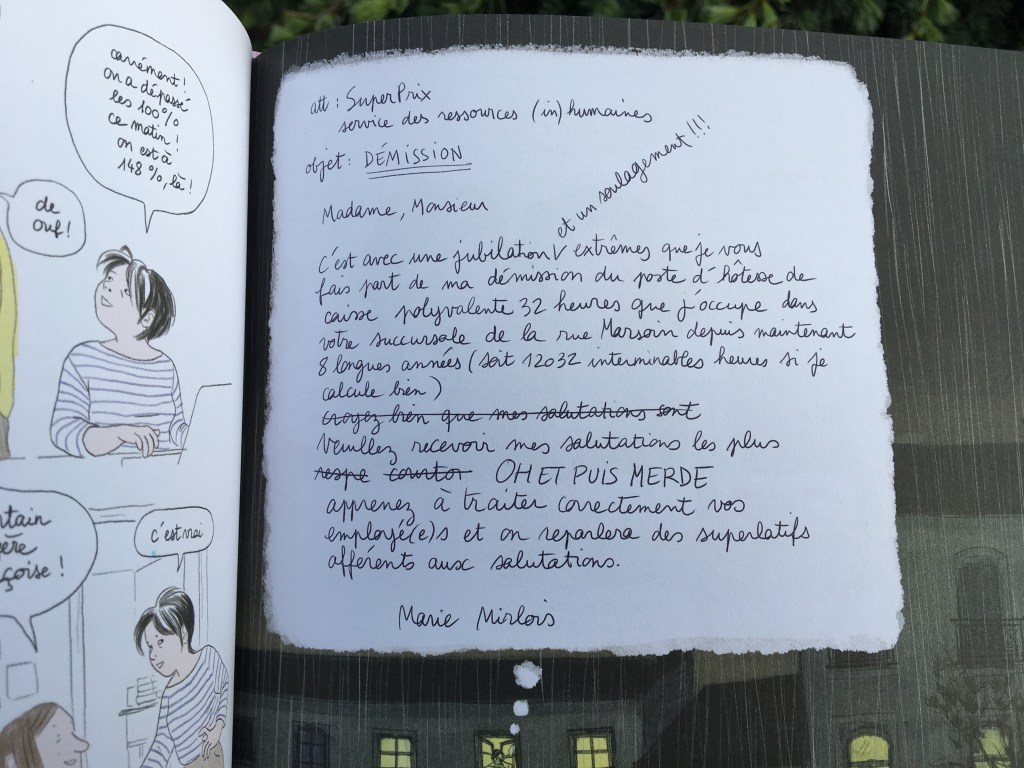 carrément !
on a dépassé
les 100%
ce matin !
on est à
148 %, là !
de
ouf !
c'est vrai
att : SuperPrix
service des ressources (in)humaines
objet : DÉMISSION
Madame, Monsieur
et un soulagement !!!
c'est avec une jubilation V extrêmes que je vous
fais part de ma démission du poste d'hôtesse de
caisse polyvalente 32 heures que j'occupe dans
votre succursale de la rue Marsoin depuis maintenant
8 longues années (soit 12032 interminables heures si je
calcule bien)
croyez bien que mes salutations sont
Veuillez recevoir mes salutations les plus
respe courtoi OH ET PUIS MERDE
apprenez à traiter correctement vos
employé(e)s et on reparlera des superlatifs
afférents aux salutations.
Marie Mirlois